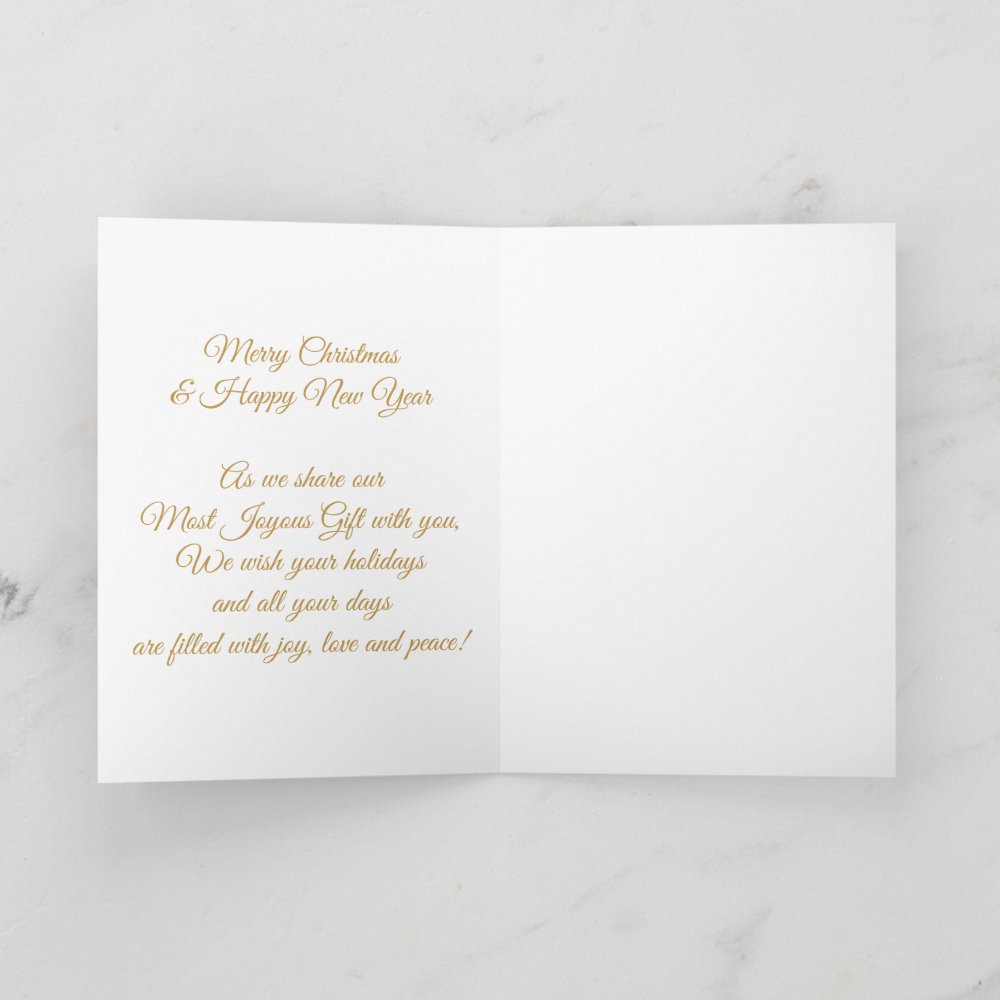 Merry Christmas
& Happy New Year
As we share our
Most Joyous Gift with you,
We wish your holidays
and all your days
are filled with joy, love and peace!